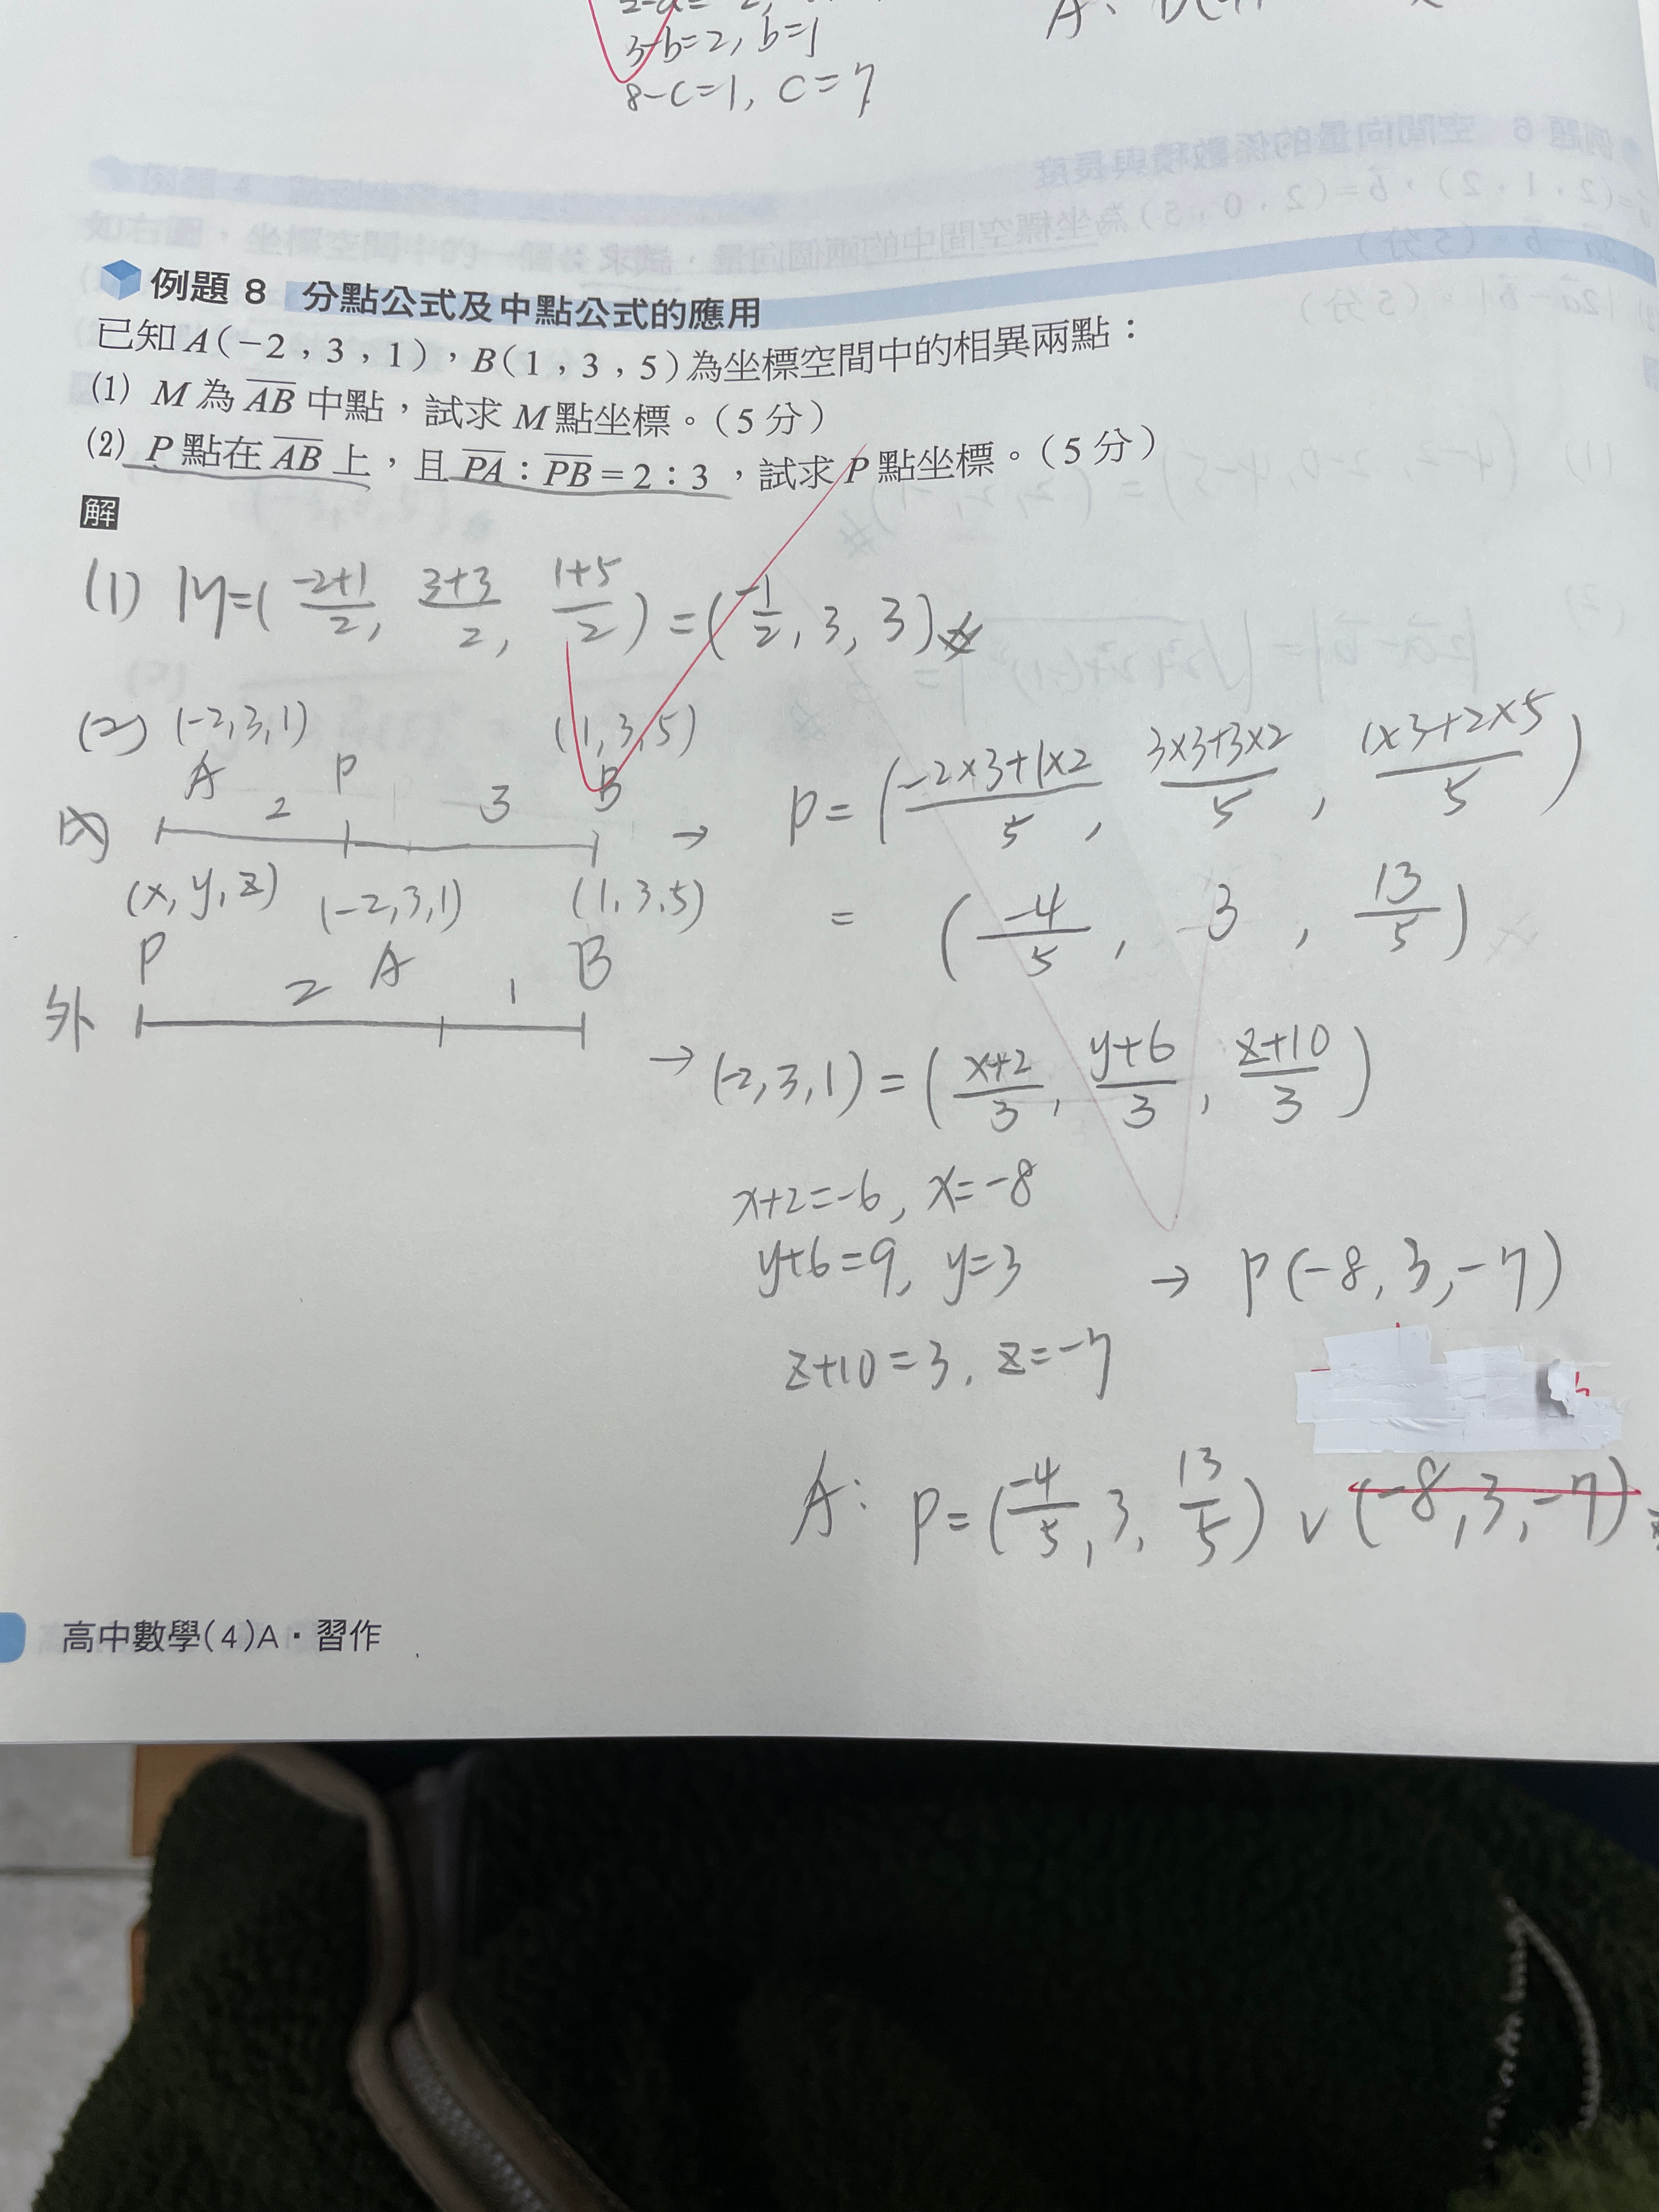 3-b=2, b=1
8-c=1, c=7
例題 8 分點公式及中點公式的應用
已知 A(-2,3,1),B(1,3,5)為坐標空間中的相異兩點:
(1) M 為 AB 中點,試求 M 點坐標。(5 分)
(2) P 點在 AB 上,且 PA:PB=2:3,試求 P 點坐標。(5 分)
解
(1) M=(-2+1/2, 3+3/2, 1+5/2)=(-1/2, 3, 3)
(2) (-2,3,1) (1,3,5)
A P B
內 2 3 → P=(-2×3+1×2/5, 3×3+3×2/5, 1×3+2×5/5)
(x,y,z) (-2,3,1) (1,3,5)
= (-4/5, 3, 13/5)
P A B
外 2 1
→ (-2,3,1)=(x+2/3, y+6/3, z+10/3)
x+2=-6, x=-8
y+6=9, y=3 → P(-8,3,-7)
z+10=3, z=-7
A: P=(-4/5, 3, 13/5) v (-8,3,-7)
高中數學(4)A·習作